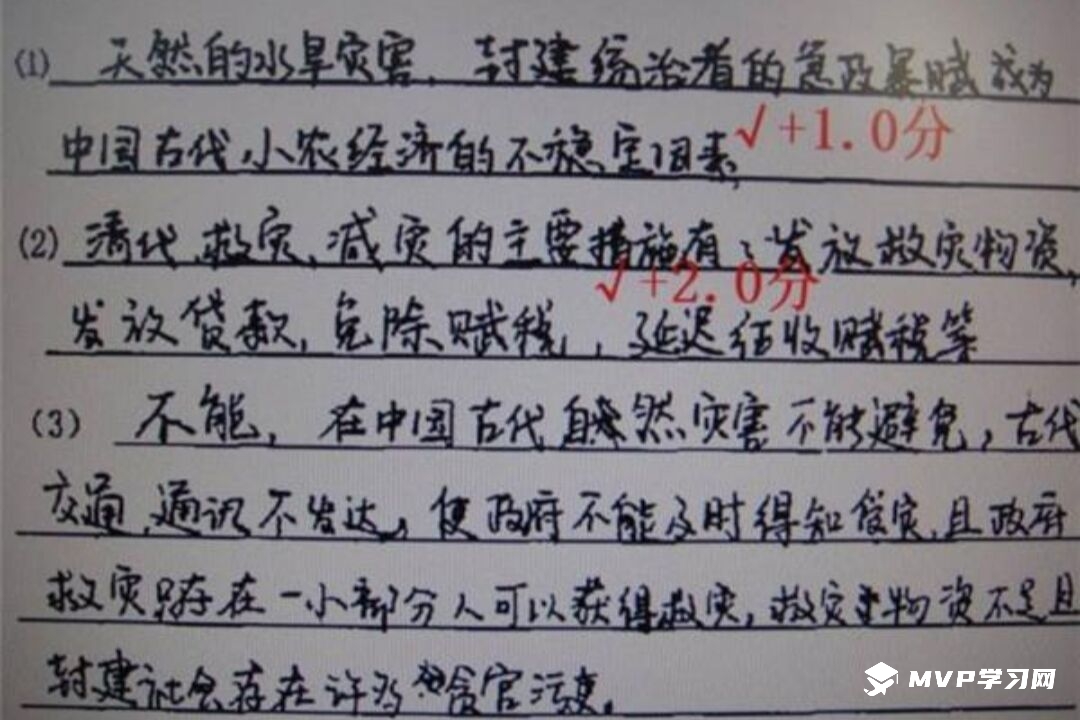 (1) 天然的水旱灾害,封建统治者的急政暴赋成为
中国古代小农经济的不稳定因素,
√+1.0分
(2) 清代,救灾、减灾的主要措施有:发放救灾物资,
√+2.0分
发放贷款,免除赋税,延迟征收赋税等
(3) 不能,在中国古代自然灾害不能避免,古代
交通,通讯不发达,使政府不能及时得知灾,且政府
救灾只存在一小部分人可以获得救灾,救灾物资不足且
封建社会存在许多贪官污吏。
MVP学习网